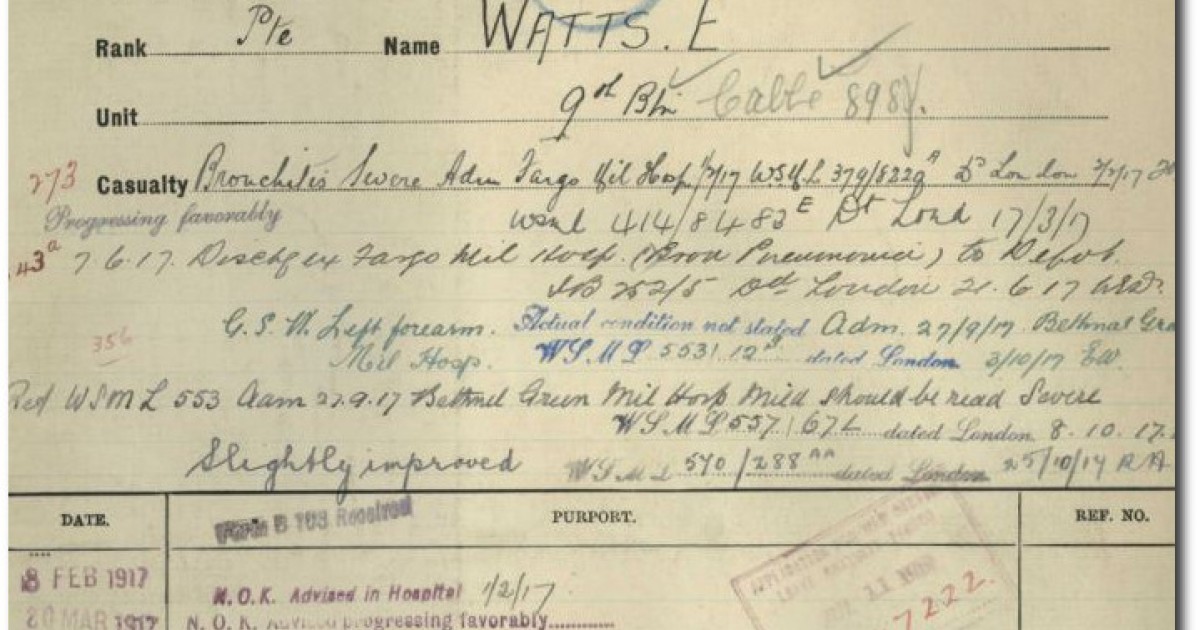 Rank Pte Name WATTS. E
Unit 9th Btn Cable 898
273 Casualty Bronchitis Severe Adm Fargo Mil Hosp 1/2/17 WSML 379/8229A Dd London 7/2/17
Progressing favorably
WSML 414/8483E Dt Lond 17/3/17
43a 7.6.17. Dischg ex Fargo Mil Hosp. (Bron Pneumonia) to Depot.
252/5 Dd London 21.6.17
G.S.W. Left forearm. Actual condition not stated Adm. 27/9/17. Bethnal Gre
356
Mil Hosp. W.S.M.L 553/12 dated London 3/10/17 EW.
Ref WSML 553 Adm 27.9.17 Bethnel Green Mil Hosp Mild should be read Severe
W.S.M.L 557/67L dated London 8.10.17.
Slightly improved W.S.M.L 570/288AA dated London 25/10/17 RA
DATE. PURPORT. REF. NO.
Form B 103 Received
8 FEB 1917 N.O.K. Advised in Hospital 1/2/17
7222.
20 MAR 1917 N.O.K. Advised progressing favorably